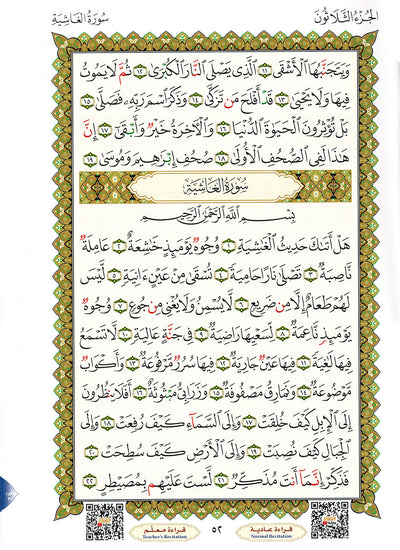 سُورَةُ الغَاشِيَةِ
الجُزْءُ الثَّلَاثُونَ
وَيَتَجَنَّبُهَا ٱلْأَشْقَى ١١ ٱلَّذِى يَصْلَى ٱلنَّارَ ٱلْكُبْرَىٰ ١٢ ثُمَّ لَا يَمُوتُ
فِيهَا وَلَا يَحْيَىٰ ١٣ قَدْ أَفْلَحَ مَن تَزَكَّىٰ ١٤ وَذَكَرَ ٱسْمَ رَبِّهِۦ فَصَلَّىٰ ١٥
بَلْ تُؤْثِرُونَ ٱلْحَيَوٰةَ ٱلدُّنْيَا ١٦ وَٱلْءَاخِرَةُ خَيْرٌ وَأَبْقَىٰٓ ١٧ إِنَّ
هَٰذَا لَفِى ٱلصُّحُفِ ٱلْأُولَىٰ ١٨ صُحُفِ إِبْرَٰهِيمَ وَمُوسَىٰ ١٩
سُورَةُ الغَاشِيَةِ
بِسْمِ ٱللَّهِ ٱلرَّحْمَٰنِ ٱلرَّحِيمِ
هَلْ أَتَىٰكَ حَدِيثُ ٱلْغَٰشِيَةِ ١ وُجُوهٌ يَوْمَئِذٍ خَٰشِعَةٌ ٢ عَامِلَةٌ
نَّاصِبَةٌ ٣ تَصْلَىٰ نَارًا حَامِيَةً ٤ تُسْقَىٰ مِنْ عَيْنٍ ءَانِيَةٍ ٥ لَّيْسَ
لَهُمْ طَعَامٌ إِلَّا مِن ضَرِيعٍ ٦ لَّا يُسْمِنُ وَلَا يُغْنِى مِن جُوعٍ ٧ وُجُوهٌ
يَوْمَئِذٍ نَّاعِمَةٌ ٨ لِّسَعْيِهَا رَاضِيَةٌ ٩ فِى جَنَّةٍ عَالِيَةٍ ١٠ لَّا تَسْمَعُ
فِيهَا لَٰغِيَةً ١١ فِيهَا عَيْنٌ جَارِيَةٌ ١٢ فِيهَا سُرُرٌ مَّرْفُوعَةٌ ١٣ وَأَكْوَابٌ
مَّوْضُوعَةٌ ١٤ وَنَمَارِقُ مَصْفُوفَةٌ ١٥ وَزَرَابِىُّ مَبْثُوثَةٌ ١٦ أَفَلَا يَنظُرُونَ
إِلَى ٱلْإِبِلِ كَيْفَ خُلِقَتْ ١٧ وَإِلَى ٱلسَّمَآءِ كَيْفَ رُفِعَتْ ١٨ وَإِلَى
ٱلْجِبَالِ كَيْفَ نُصِبَتْ ١٩ وَإِلَى ٱلْأَرْضِ كَيْفَ سُطِحَتْ ٢٠
فَذَكِّرْ إِنَّمَآ أَنتَ مُذَكِّرٌ ٢١ لَّسْتَ عَلَيْهِم بِمُصَيْطِرٍ ٢٢
قراءة معلم
Teacher's Recitation
٥٢
قراءة عادية
Normal Recitation